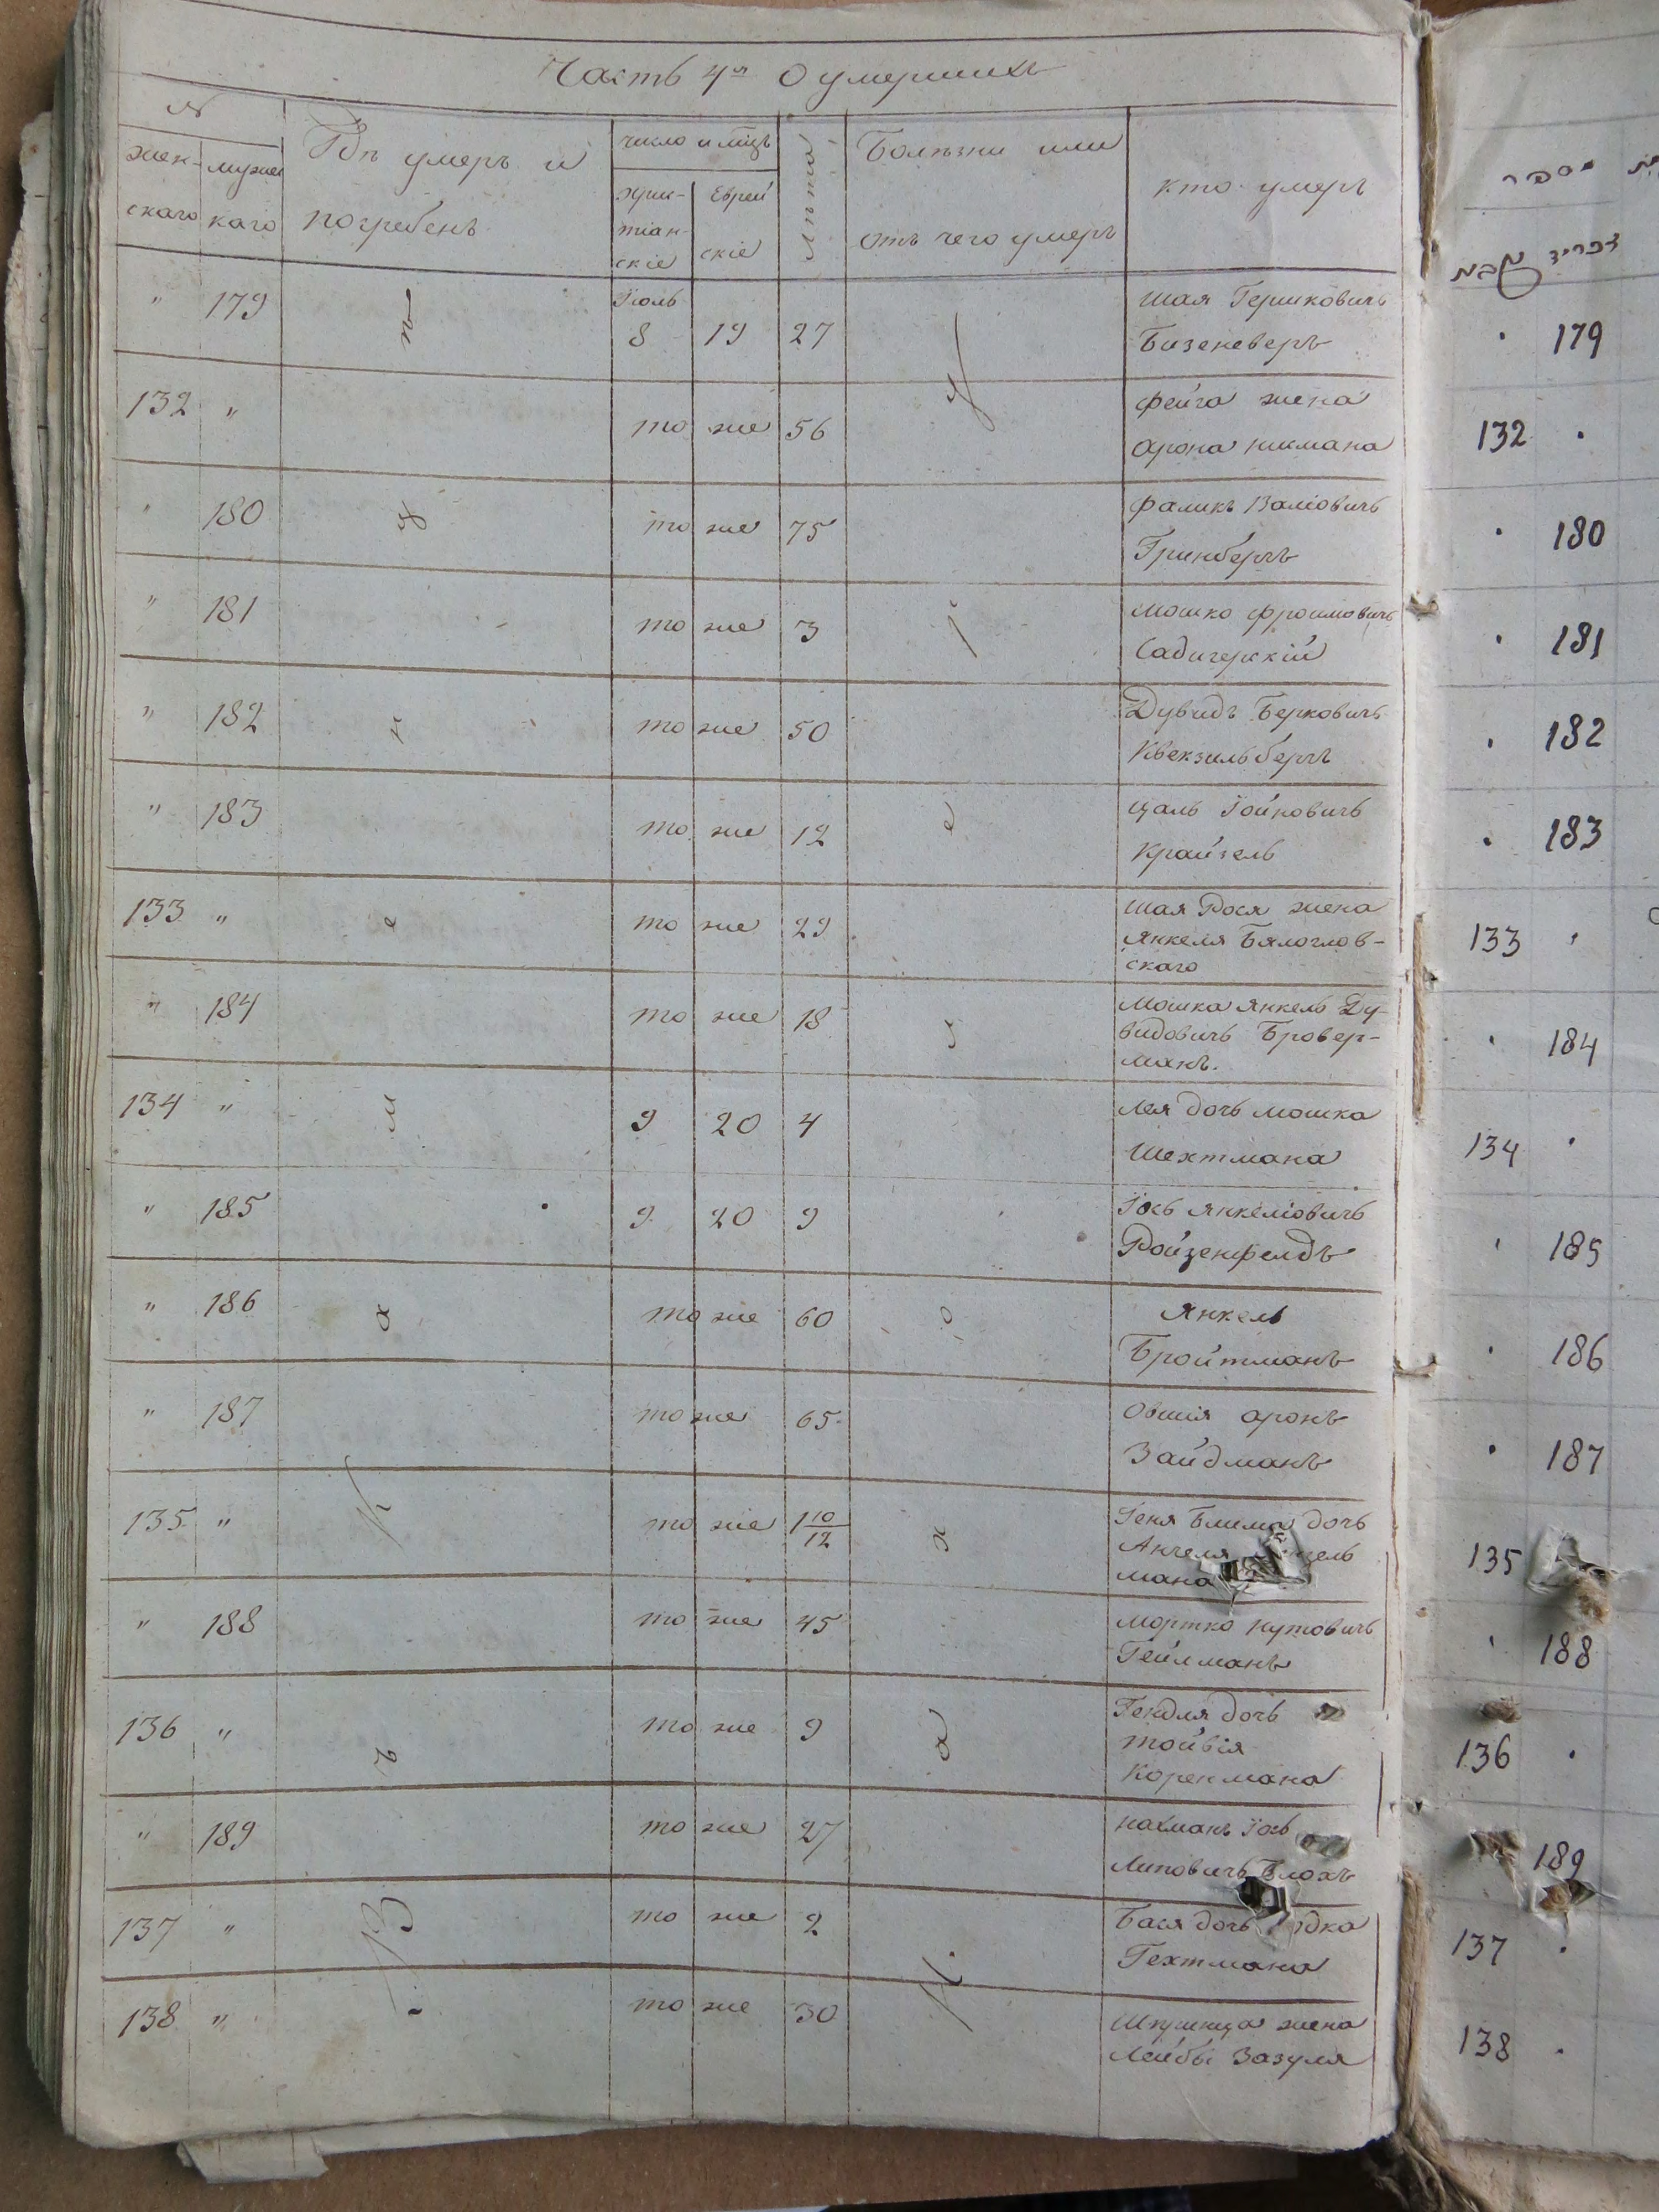 Часть 4я О умершихъ
№
женскаго
мужескаго
Гдѣ умеръ и погребенъ
число и мѣсц
христіанскіе
Еврейскіе
лѣта
Болѣзни или отъ чего умеръ
кто умеръ
" 179 Іюль 8 19 27 Шая Гершковичъ
Бизеневеръ
132 " то же 56 Фейга жена
Арона нисмана
" 180 то же 75 Фаликъ
Гринбергъ
" 181 то же 3 Мошко Фроимовичъ
Садигерскій
" 182 то же 50 Дувидъ Берковичъ
Квекзильбергъ
" 183 то же 12 Цаль Іойновичъ
Крайзель
133 " то же 29 Шая Рося жена
Янкеля Бялоглов-
скаго
" 184 то же 18 Мошка Янкель Ду-
видовичъ Бровер-
манъ.
134 " 9 20 4 Лея дочь Мошка
Шехтмана
" 185 9 20 9 Іось Янкеліовичъ
Ройзенфелдъ
" 186 то же 60 Янкель
Бройтманъ
" 187 то же 65 Овшія Аронъ
Зайдманъ
135 " то же 1 10/12 Геня Блима дочь
мана
" 188 то же 45 Мортко Нутовичъ
Гейлманъ
136 " то же 9 Гендля дочь
Тойвія
Коренмана
" 189 то же 27 Нахманъ Іось
Липовичъ Блохъ
137 " то же 2 Бася дочь
Гехтмана
138 " то же 30 Шпринца жена
Лейбы Зазуля
179
132
180
181
182
183
133
184
134
185
186
187
135
188
136
189
137
138